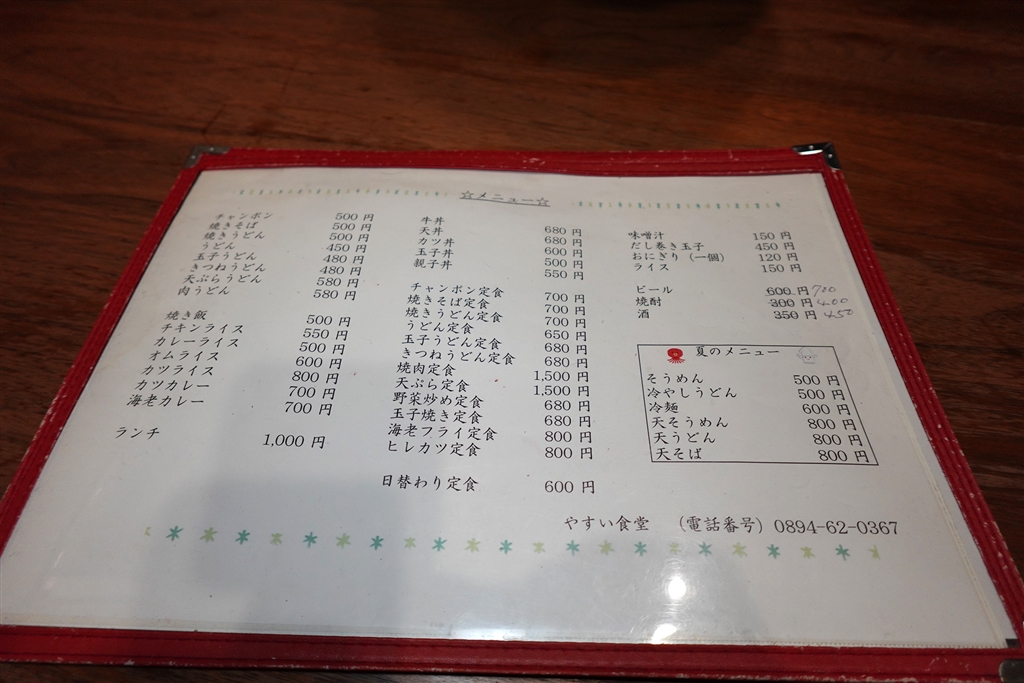 ☆メニュー☆
チャンポン 500 円
焼きそば 500 円
焼きうどん 500 円
うどん 450 円
玉子うどん 480 円
きつねうどん 480 円
天ぷらうどん 580 円
肉うどん 580 円
焼き飯 500 円
チキンライス 550 円
カレーライス 500 円
オムライス 600 円
カツライス 800 円
カツカレー 700 円
海老カレー 700 円
ランチ 1,000 円
牛丼 680 円
天丼 680 円
カツ丼 600 円
玉子丼 500 円
親子丼 550 円
チャンポン定食 700 円
焼きそば定食 700 円
焼きうどん定食 700 円
うどん定食 650 円
玉子うどん定食 680 円
きつねうどん定食 680 円
焼肉定食 1,500 円
天ぷら定食 1,500 円
野菜炒め定食 680 円
玉子焼き定食 680 円
海老フライ定食 800 円
ヒレカツ定食 800 円
日替わり定食 600 円
味噌汁 150 円
だし巻き玉子 450 円
おにぎり（一個） 120 円
ライス 150 円
ビール 600 円 700
焼酎 300 円 400
酒 350 円 450
夏のメニュー
そうめん 500 円
冷やしうどん 500 円
冷麺 600 円
天そうめん 800 円
天うどん 800 円
天そば 800 円
やすい食堂 （電話番号）0894-62-0367